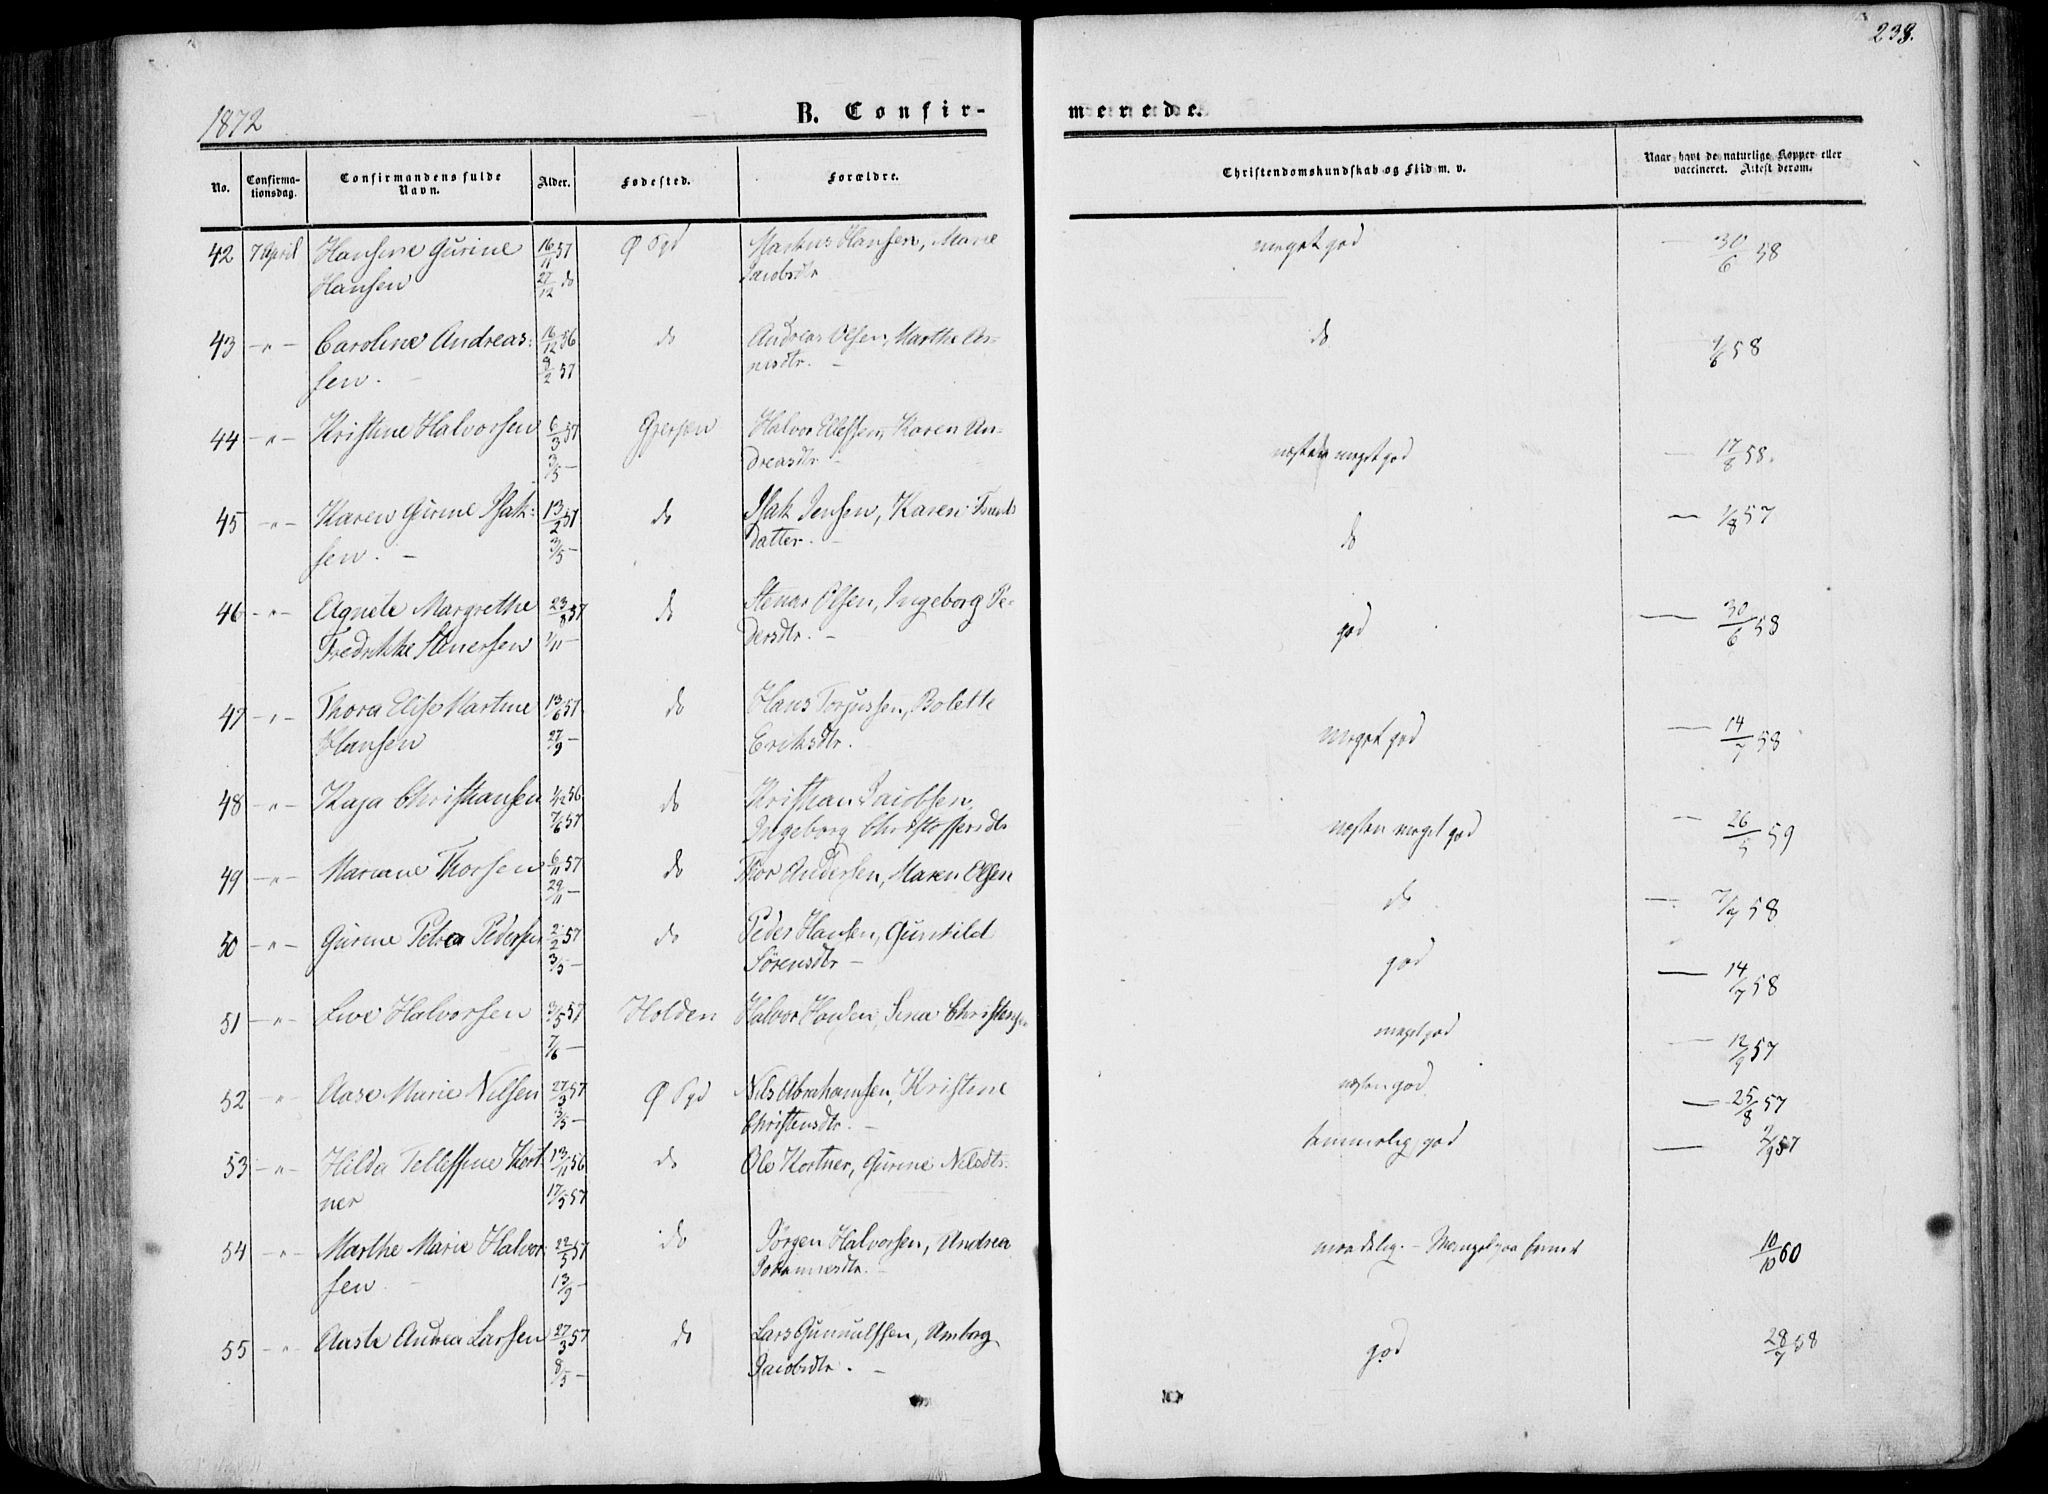 238.
1872
B. Confir-
merede.
No.
Confirma-
tionsdag.
Confirmandens fulde
Navn.
Alder.
Fødested.
Forældre.
Christendomskundskab og Flid m. v.
Naar havt de naturlige Kopper eller
vaccineret. Attest derom.
42 7 April Hansine Gurine 16/11 57 Ø Sgd Markus Hansen, Marie meget god — 30/6 58
Hansen 27/12 do Jacobsdtr
43 -"- Caroline Andreas: 16/12 56 do Andreas Olsen, Marthe do 1/6 58
sen. - 8/2 57
44 -"- Kristine Halvorsen 6/3 57 Gjerpen Halvor Ellefsen, Karen An- næsten meget god — 17/8 58.
3/5 — dreasdtr -
45 -"- Karen Gurine Isak: 13/2 57 do Isak Jensen, Karen do — 1/8 57
sen. - 3/5 — datter. -
46 -"- Agnete Margrethe 23/8 57 do Stenar Olsen, Ingeborg Pe- god — 30/6 58
Fredrikke Stenersen 1/11 — dersdtr. -
47 -"- Thora Elise Martine 13/6 57 do Hans Torjussen, Bolette meget god — 14/7 58
Hansen 27/9 — Eriksdtr.
48 -"- Kaja Christiansen 4/12 56 do Kristian Jacobsen, næsten meget god — 26/5 59
7/6 57 Ingeborg Christoffersdtr
49 -"- Mariane Thorsen 6/11 57 do Thor Andersen, Maren Olsen do — 7/7 58
29/11 —
50 -"- Gurine Petrea Pedersen 2/2 57 do Peder Hansen, Gunhild god — 14/7 58
3/5 — Sørensdtr -
51 -"- Live Halvorsen 3/5 57 Holden Halvor Hansen, Christensen meget god — 12/9 57
7/6 —
52 -"- Aase Marie Nilsen 27/3 57 Ø Sgd Nils Abrahamsen, Kristine næsten god — 25/8 57
3/5 — Christensdtr. -
53 -"- Hilda Tellefsine Kort 13/11 56 do Ole Kortner, Gurine Nilsdtr. temmelig god — 2/9 57
ner 17/5 57
54 -"- Marthe Marie Halvor- 22/5 57 do Jørgen Halvorsen, Andrea maadelig. - Mangel paa 10/10 60
sen 13/9 — Johannesdtr. -
55 -"- Aaste Andrea Larsen 27/3 57 do Lars Gunnulfsen, Amborg god 28/7 58
8/5 — Jacobsdtr. -